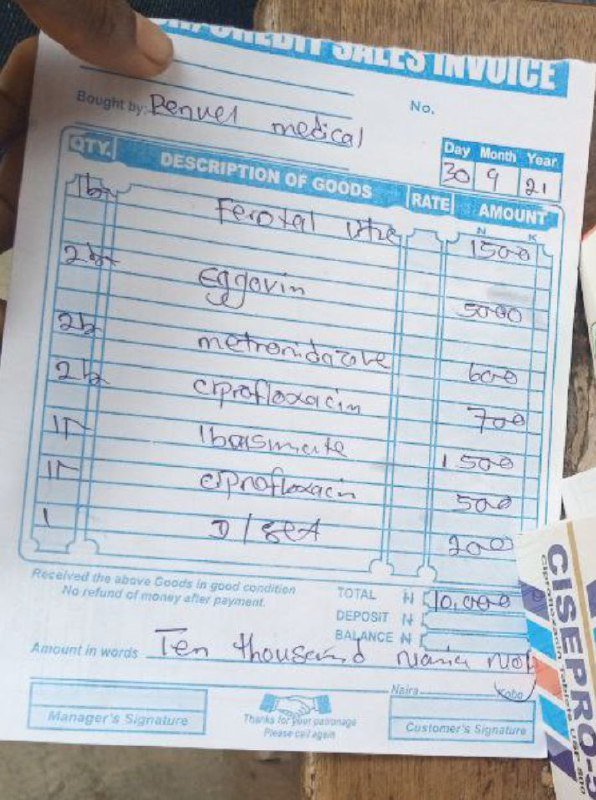 CREDIT SALES INVOICE
Bought by: Penuel medical
No.
Day Month Year
30 9 21
QTY. DESCRIPTION OF GOODS RATE AMOUNT
N K
Ferotal 1500
Eggovin 5000
metronidazole 600
ciprofloxacin 700
1500
ciprofloxacin 500
1 D/set 200
Received the above Goods in good condition
No refund of money after payment.
TOTAL N 10,000
DEPOSIT N
BALANCE N
Amount in words Ten thousand naira
Naira Kobo
Manager's Signature
Thanks for your patronage
Please call again
Customer's Signature
CISEPRO-5